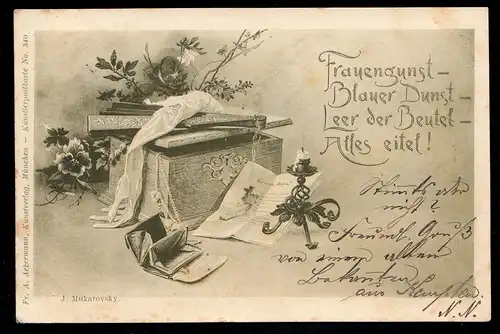 Fr. A. Ackermann, Kunstverlag, München — Künstlerpostkarte No. 340
Frauengunst —
Blauer Dunst —
Leer der Beutel —
Alles eitel!
Stimmts oder
nicht?
Freundl. Gruß
von einem alten
Bekannten
aus Kempten.
N. N.
J. Mukarovsky.